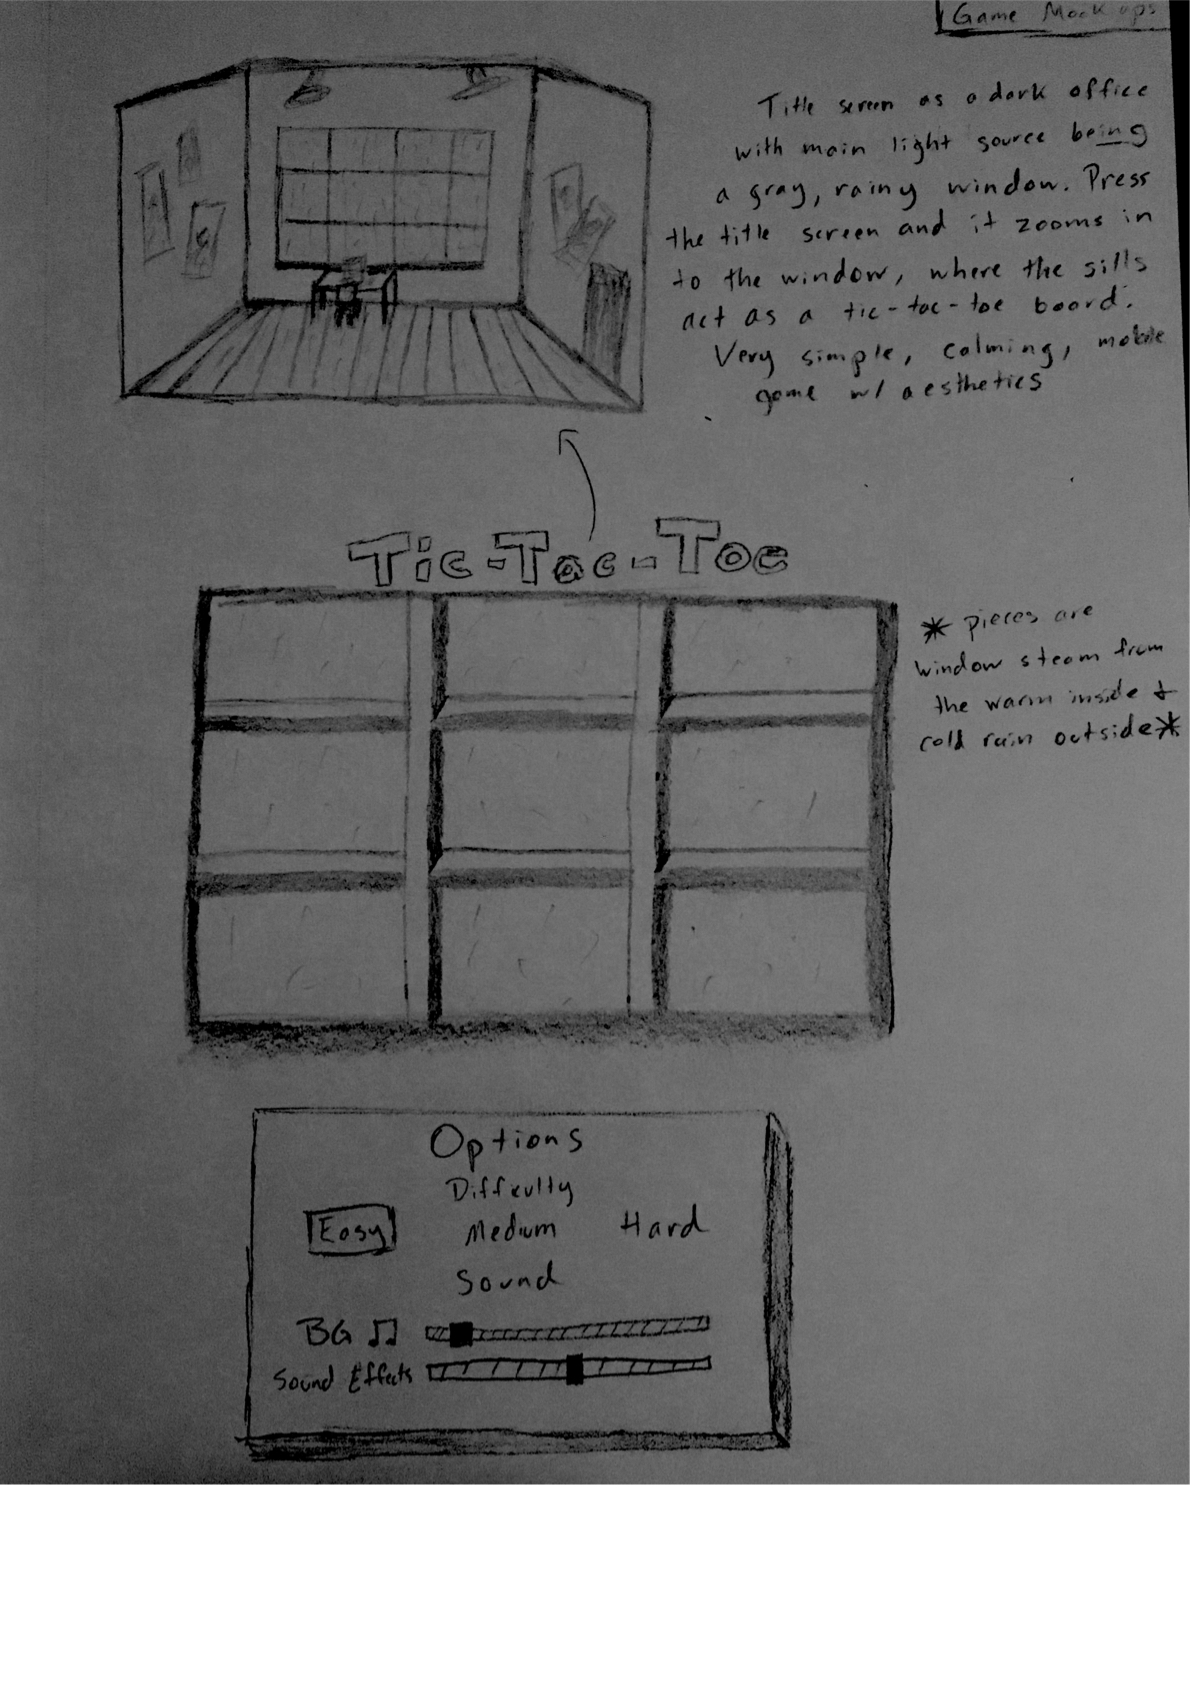 Game Mock ups
Title screen as a dark office
with main light source being
a gray, rainy window. Press
the title screen and it zooms in
to the window, where the sills
act as a tic-tac-toe board.
Very simple, calming, mobile
game w/ aesthetics
Tic-Tac-Toe
* pieces are
window steam from
the warm inside +
cold rain outside*
Options
Difficulty
Easy Medium Hard
Sound
BG ♫
Sound Effects